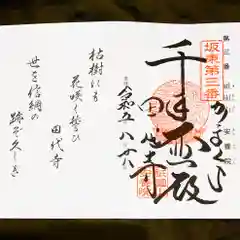 第三番 安養院
坂東第三番
かまくら
千手大悲殿
田代寺
令和五 八
枯樹にも
花咲く誓ひ
田代寺
世を信綱の
跡ぞ久しき